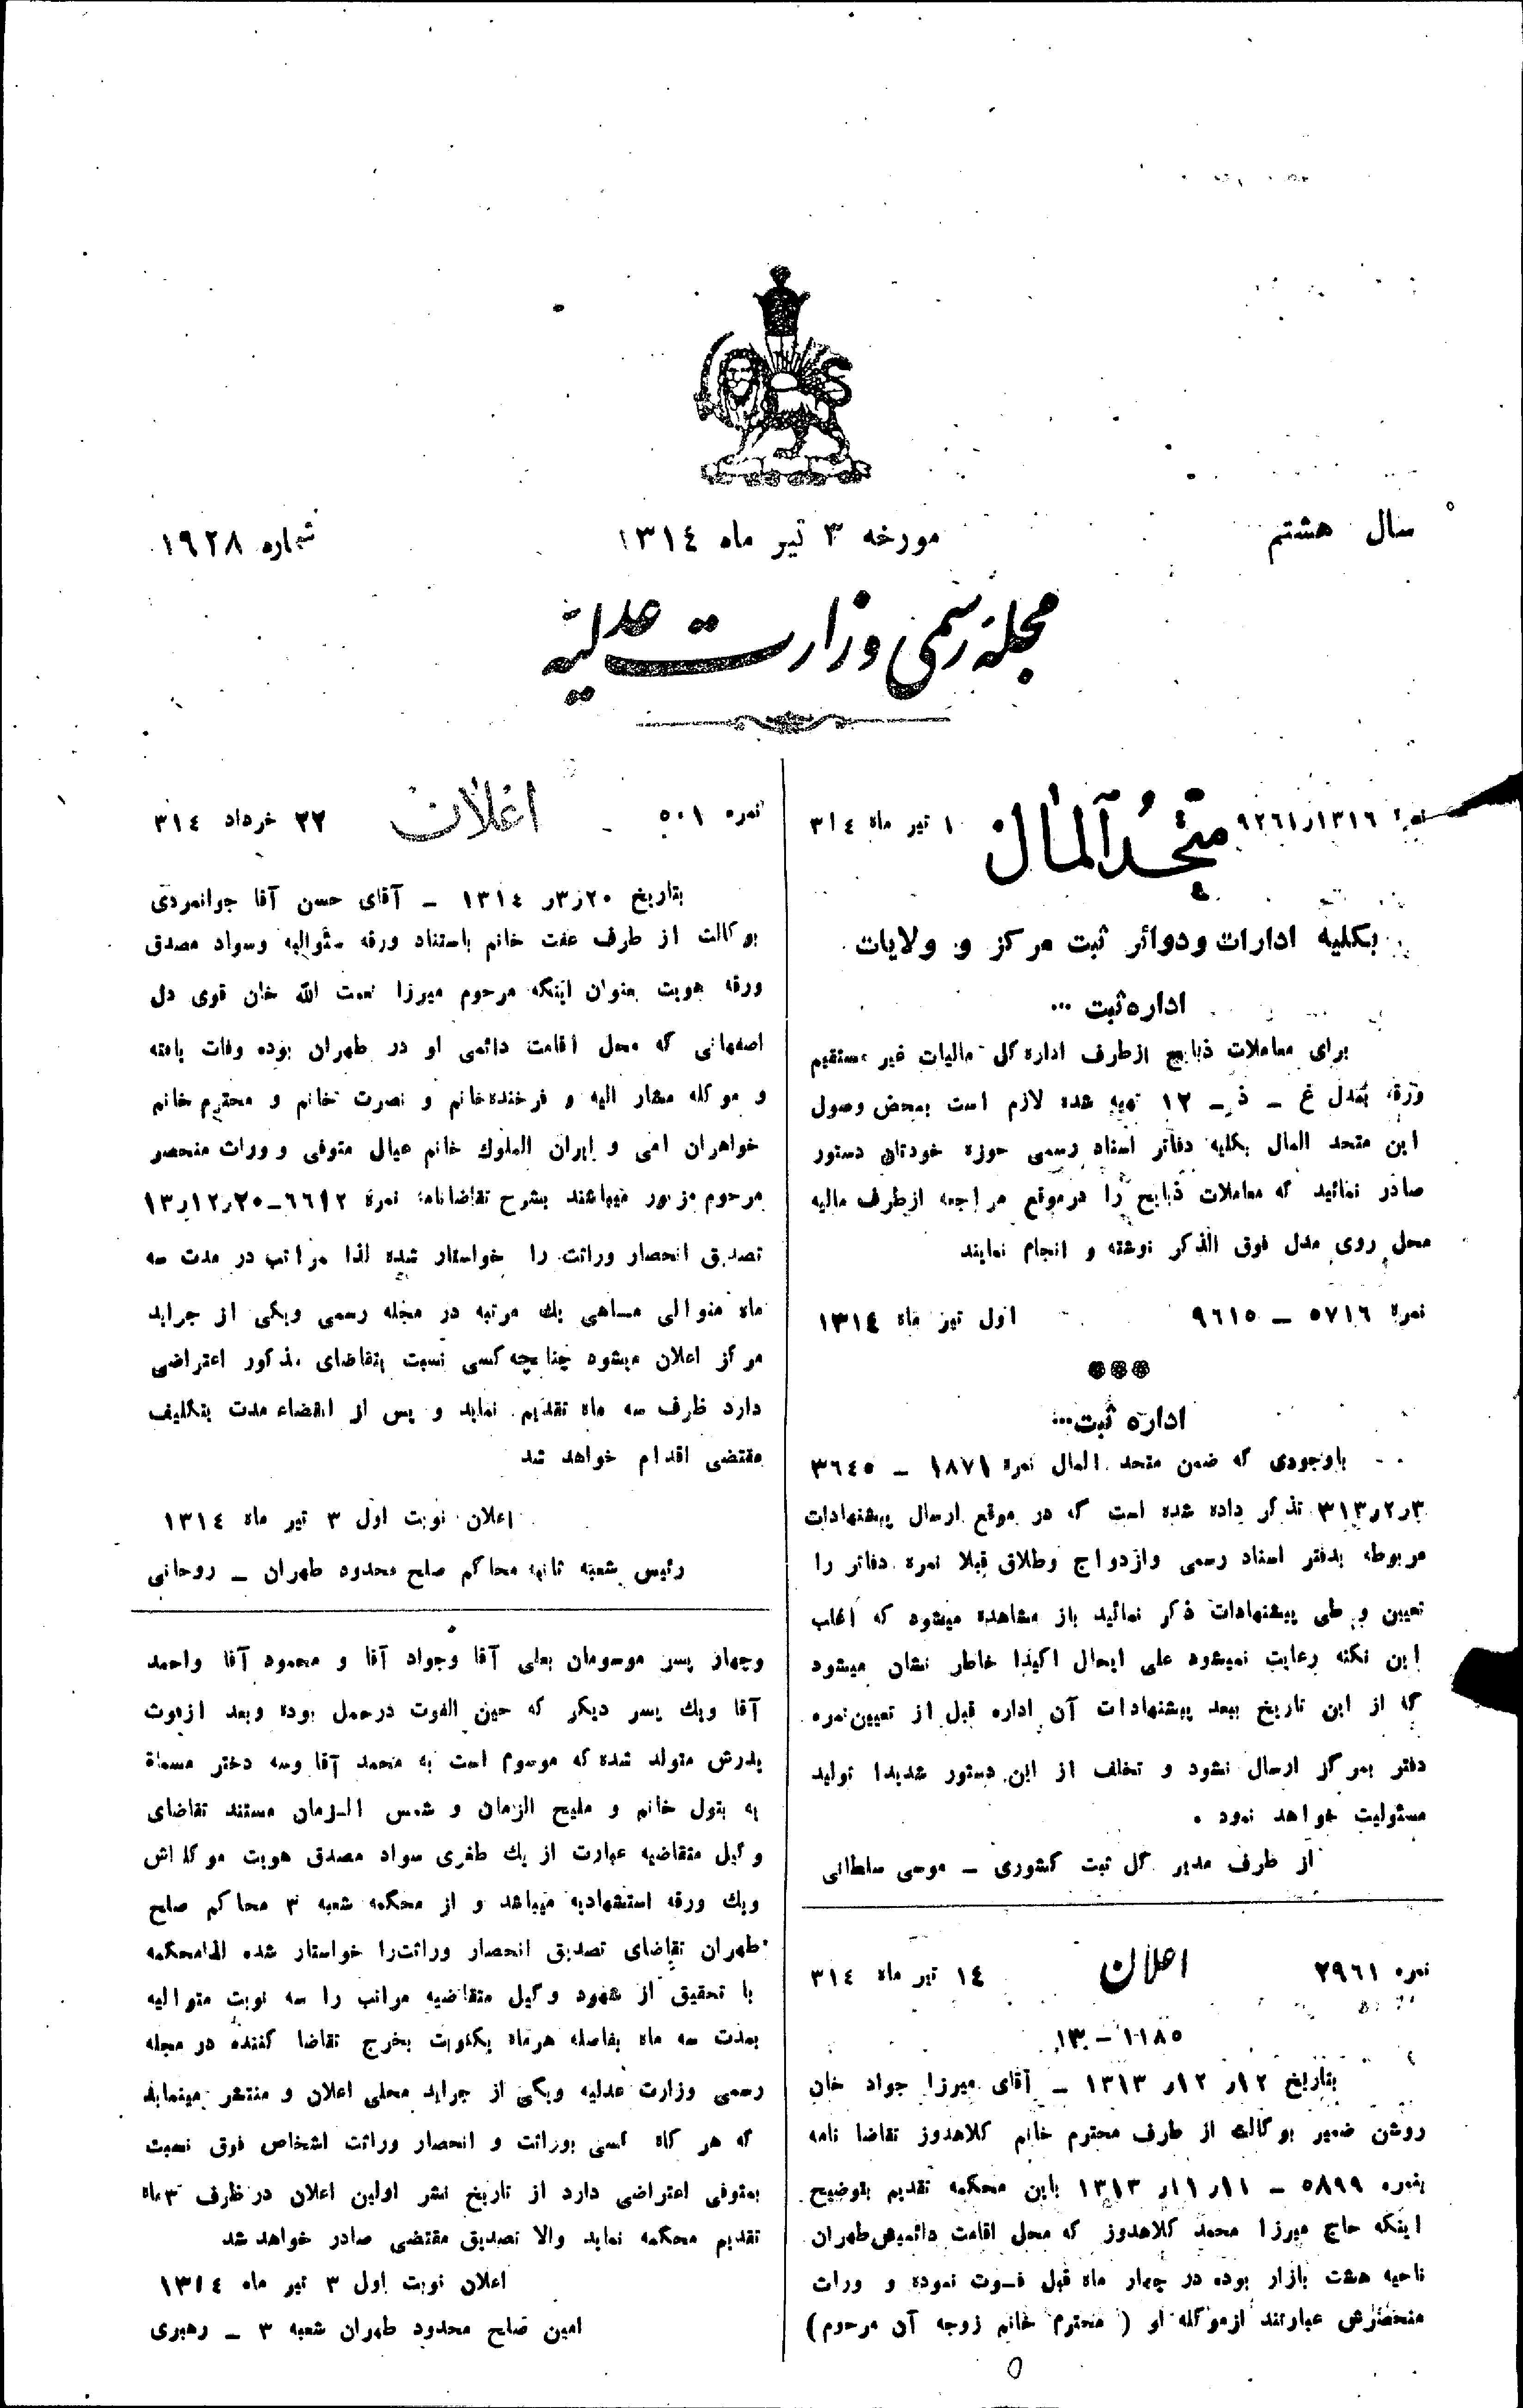 سال هشتم
مورخه ۳ تیر ماه ۱۳۱٤
شماره ۱۹۲۸
مجله رسمی وزارت عدلیه
نمره ۹۲٦۱٫۱۳۱٦
متحد المال
۱ تیر ماه ۳۱٤
بکلیه ادارات ودوائر ثبت مرکز و ولایات
اداره ثبت ...
برای معاملات ذبایح ازطرف اداره کل مالیات غیر مستقیم
ورقه بمدل غ ـ ذ ـ ۱۲ تهیه شده لازم است بمحض وصول
این متحد المال بکلیه دفاتر اسناد رسمی حوزه خودتان دستور
صادر نمائید که معاملات ذبایح را درموقع مراجعه ازطرف مالیه
محل روی مدل فوق الذکر نوشته و انجام نمایند
نمره ۵۷۱٦ ـ ۹٦۱۵
اول تیر ماه ۱۳۱٤
اداره ثبت...
باوجودی که ضمن متحد المال نمره ۱۸۷۱ ـ ۳٦٤۵
۳ر۲ر۳۱۳ تذکر داده شده است که در موقع ارسال پیشنهادات
مربوطه بدفتر اسناد رسمی وازدواج وطلاق قبلا نمره دفاتر را
تعیین و طی پیشنهادات ذکر نمائید باز مشاهده میشود که اغلب
این نکته رعایت نمیشود علی ایحال اکیدا خاطر نشان میشود
که از این تاریخ ببعد پیشنهادات آن اداره قبل از تعیین نمره
دفتر بمرکز ارسال نشود و تخلف از این دستور شدیدا تولید
مسئولیت خواهد نمود .
از طرف مدیر کل ثبت کشوری ـ موسی سلطانی
نمره ۲۹٦۱
اعلان
۱٤ تیر ماه ۳۱٤
۱۱۸۵ ـ ۱۳
بتاریخ ۱۲ر ۱۲ر ۱۳۱۳ ـ آقای میرزا جواد خان
روشن ضمیر بوکالت از طرف محترم خانم کلاهدوز تقاضا نامه
بنمره ۵۸۹۹ ـ ۱۱ر۱۱ر ۱۳۱۳ باین محکمه تقدیم بتوضیح
اینکه حاج میرزا محمد کلاهدوز که محل اقامت دائمیش طهران
ناحیه هشت بازار بوده در چهار ماه قبل فوت نموده و وراث
منحصرش عبارتند ازموکله او ( محترم خانم زوجه آن مرحوم )
نمره ۵۰۱
اعلان
۲۲ خرداد ۳۱٤
بتاریخ ۲۰ر۳ر ۱۳۱٤ ـ آقای حسن آقا جوانمردی
بوکالت از طرف عفت خانم باستناد ورقه سئوالیه وسواد مصدق
ورقه هویت بعنوان اینکه مرحوم میرزا نعمت الله خان قوی دل
اصفهانی که محل اقامت دائمی او در طهران بوده وفات یافته
و موکله مشار الیه و فرخنده خانم و نصرت خانم و محترم خانم
خواهران امی و ایران الملوك خانم عیال متوفی و وراث منحصر
مرحوم مزبور میباشند بشرح تقاضانامه نمره ٦٦۱۲ـ۲۰ر۱۲ر۱۳
تصدیق انحصار وراثت را خواستار شده لذا مراتب در مدت سه
ماه متوالی مساهی یك مرتبه در مجله رسمی ویکی از جراید
مرکز اعلان میشود چنانچه کسی نسبت بتقاضای مذکور اعتراضی
دارد ظرف سه ماه تقدیم نماید و پس از انقضاء مدت بتکلیف
مقتضی اقدام خواهد شد
اعلان نوبت اول ۳ تیر ماه ۱۳۱٤
رئیس شعبه ثانیه محاکم صلح محدود طهران ـ روحانی
وچهار پسر موسومان بعلی آقا وجواد آقا و محمود آقا واحمد
آقا ویك پسر دیگر که حین الفوت درحمل بوده وبعد ازفوت
پدرش متولد شده که موسوم است به محمد آقا وسه دختر مسماة
به بتول خانم و ملیح الزمان و شمس الزمان مستند تقاضای
وکیل متقاضیه عبارت از یك طغری سواد مصدق هویت موکله اش
ویك ورقه استشهادیه میباشد و از محکمه شعبه ۳ محاکم صلح
طهران تقاضای تصدیق انحصار وراثت را خواستار شده لذامحکمه
با تحقیق از شهود وکیل متقاضیه مراتب را سه نوبت متوالیه
بمدت سه ماه بفاصله هرماه یکنوبت بخرج تقاضا کننده در مجله
رسمی وزارت عدلیه ویکی از جراید محلی اعلان و منتشر مینماید
که هر گاه کسی بوراثت و انحصار وراثت اشخاص فوق نسبت
بمتوفی اعتراضی دارد از تاریخ نشر اولین اعلان در ظرف ۳ ماه
تقدیم محکمه نماید والا تصدیق مقتضی صادر خواهد شد
اعلان نوبت اول ۳ تیر ماه ۱۳۱٤
امین صلح محدود طهران شعبه ۳ ـ رهبری